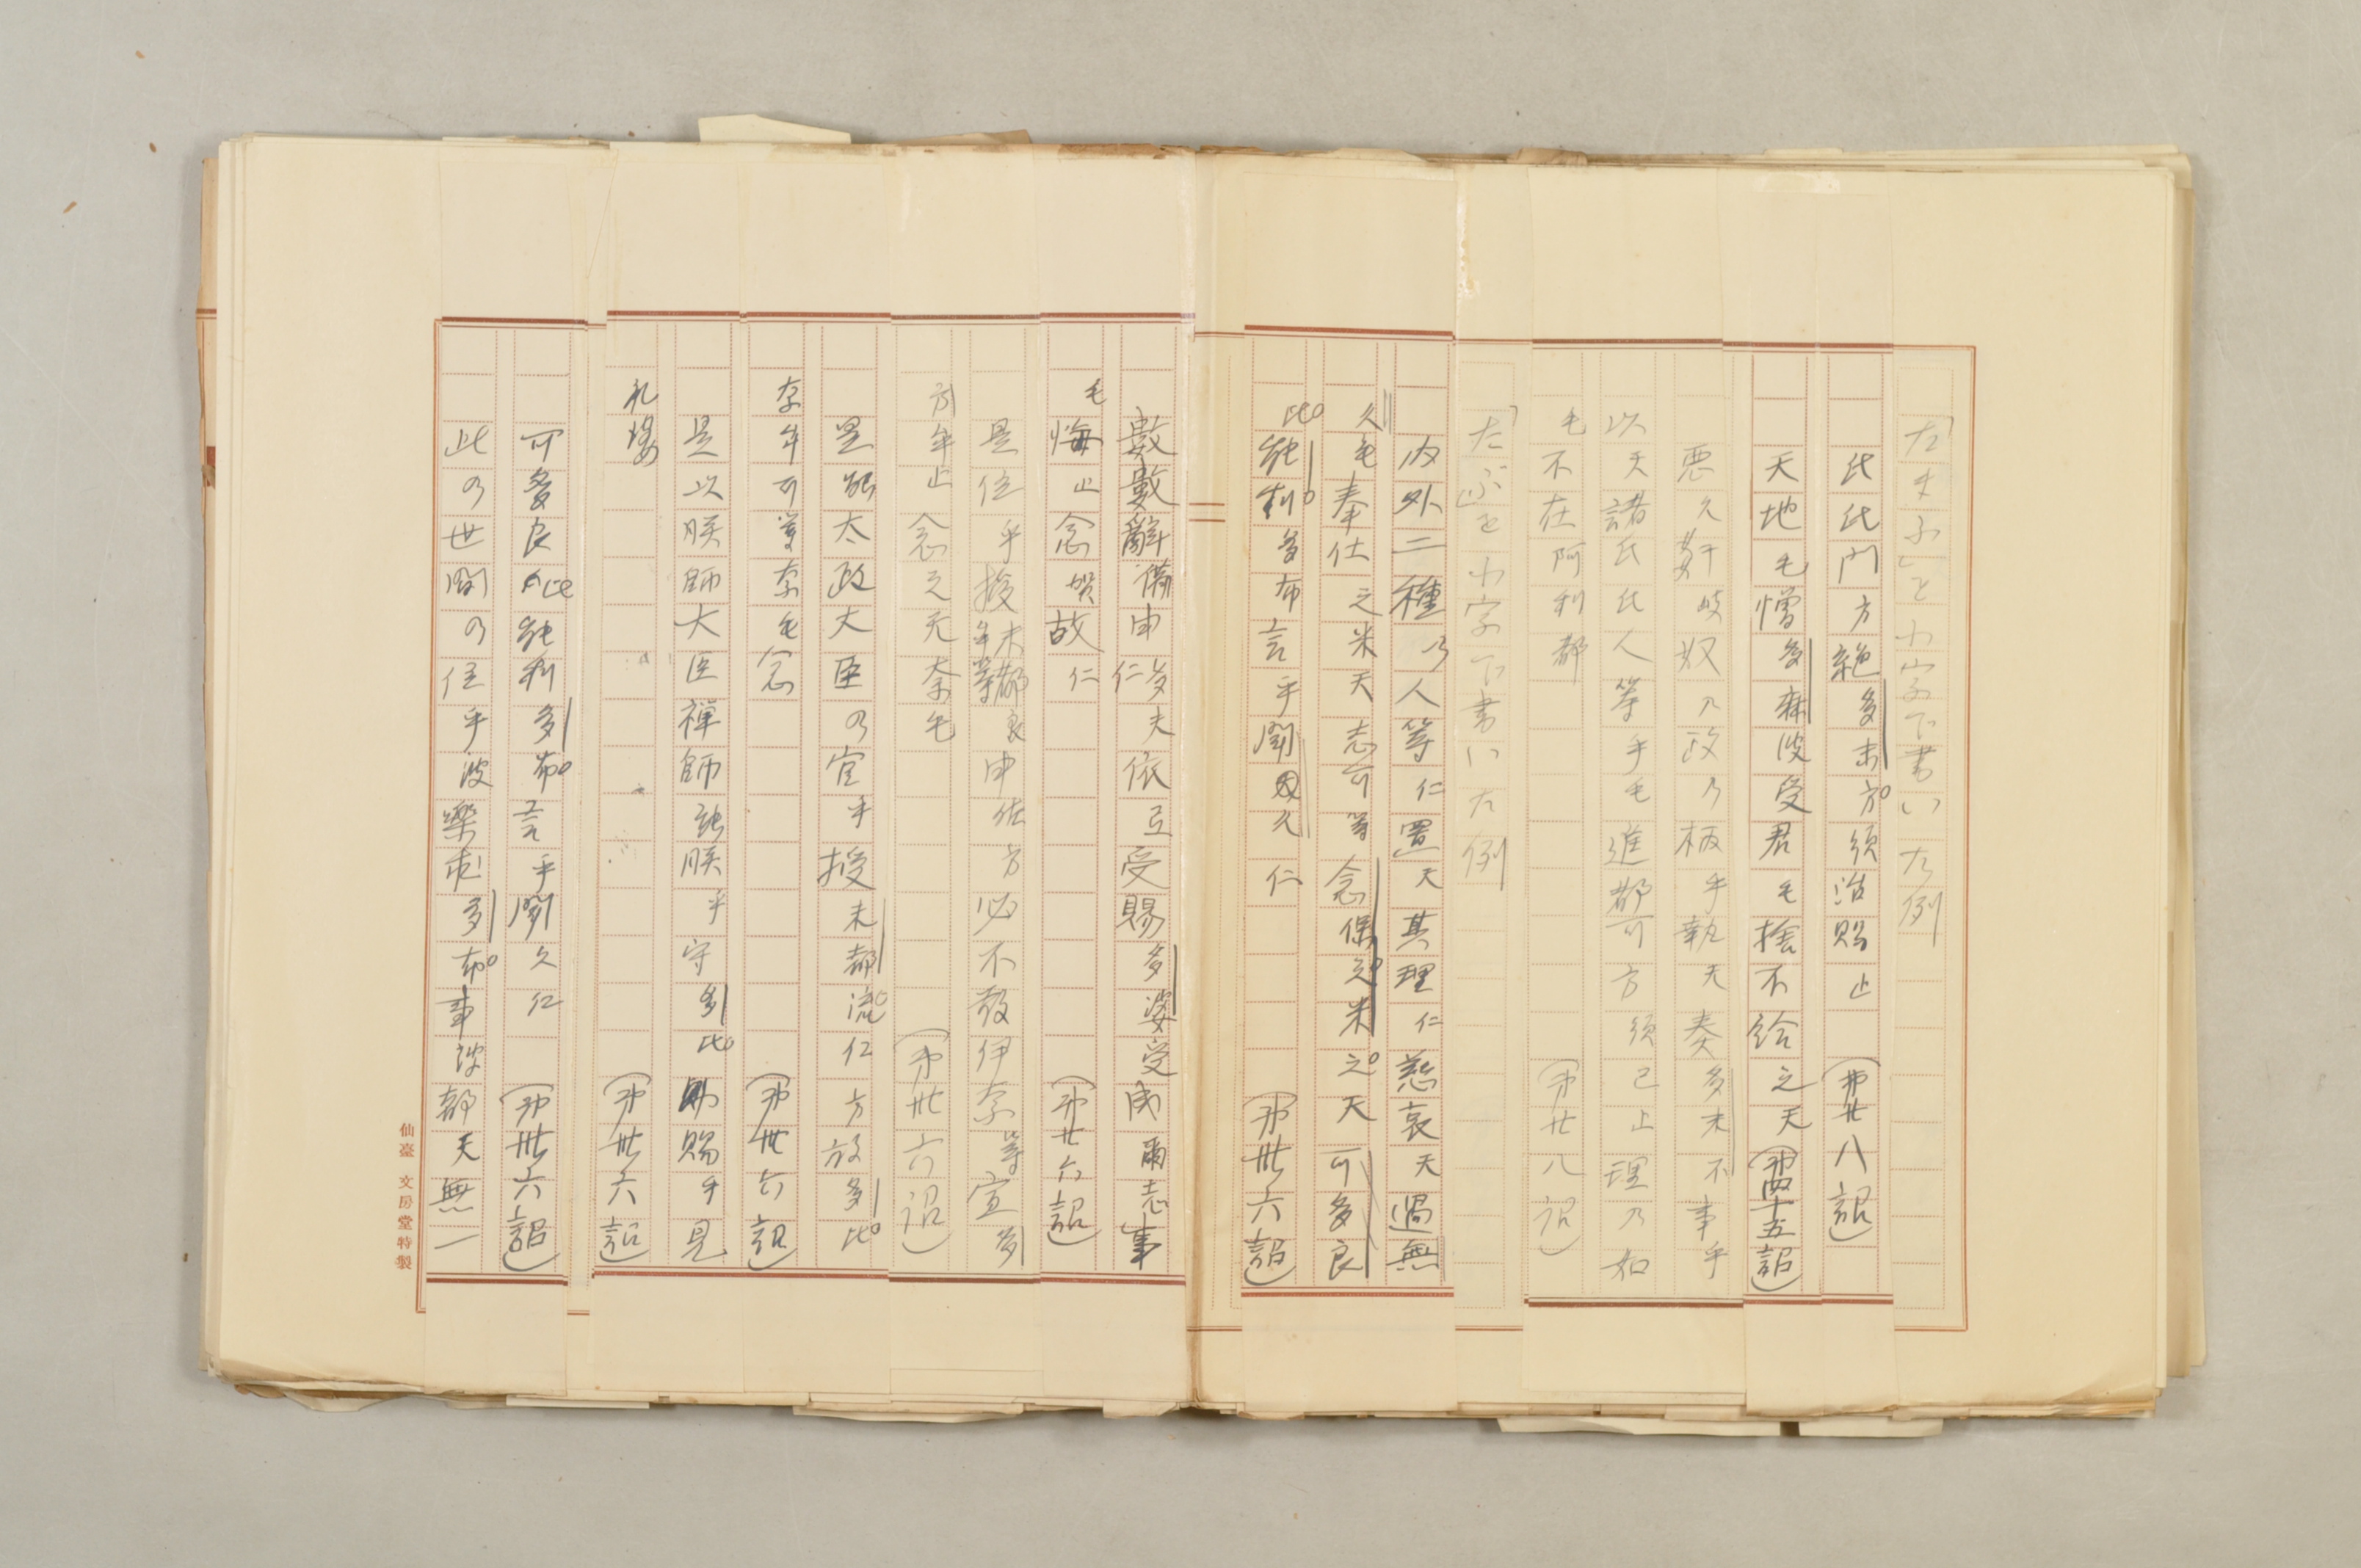 「たまふ」を小字で書いた例
氏氏門方絶多末方須治賜止 (第廿八詔)
天地毛憎多麻波受君毛捨不給之天 (第四十五詔)
悪久奸岐奴乃政乃柄乎執天奏多末不事乎
以天諸氏氏人等乎毛進都可方須己止理乃如
毛不在阿利都 (第廿八詔)
「たぶ」を小字で書いた例
内外二種乃人等仁置天其理仁慈哀天過無
久毛奉仕之米天志可等念保之米之天可多良
比能利多布言乎聞久仁 (第卌六詔)
數數辭備申仁多夫依弖受賜多婆受成爾志事
毛悔止念賀故仁 (第廿六詔)
是位乎授末都良牟等申佐方必不敢伊奈等宣多
方牟止念之天奈毛 (第卅六詔)
是能太政大臣乃官乎授末都流仁方敢多比
奈牟可等奈毛念 (第卅六詔)
是以朕師大臣禅師能朕乎守多比助賜乎見
礼婆 (第卅六詔)
可多良比能利多布言乎聞久仁 (第卌六詔)
此乃世間乃位乎波樂求多布事波都天無一
仙臺 文房堂特製